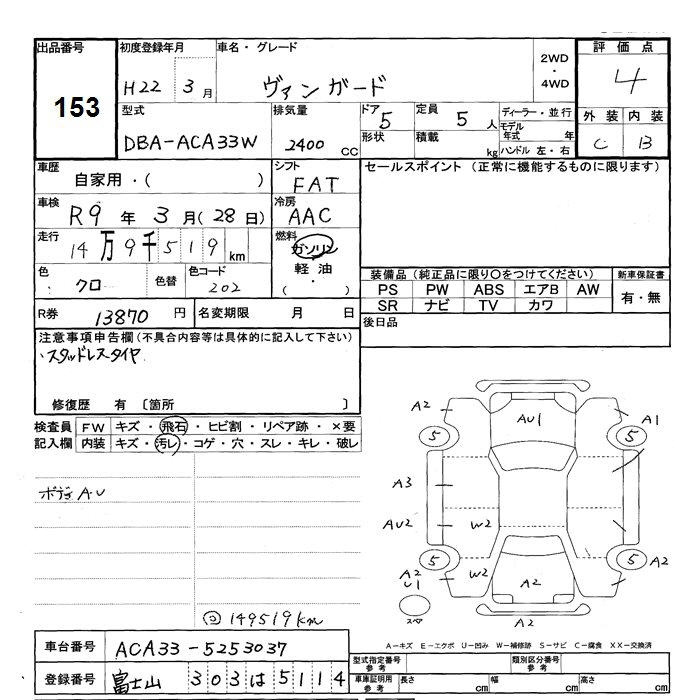 出品番号 初度登録年月 車名・グレード 2WD・4WD 評価点
153 H22 3月 ヴァンガード 4
型式 排気量 ドア 5 定員 5人 ディーラー・並行 外装 内装
DBA-ACA33W 2400 CC 形状 積載 kg モデル年式 年 C B
ハンドル 左・右
車歴 シフト セールスポイント (正常に機能するものに限ります)
自家用・( ) FAT
車検 冷房
R9年 3月(28日) AAC
走行 燃料
14万9千519km ガソリン
軽油
・
( )
色 色替 色コード 装備品(純正品に限り○をつけてください) 新車保証書
クロ 202 PS PW ABS エアB AW 有・無
SR ナビ TV カワ
R券 13870円 名変期限 月 日 後日品
注意事項申告欄(不具合内容等は具体的に記入して下さい)
・スタッドレスタイヤ
修復歴 有 〔箇所 〕
検査員 FW キズ・飛石・ヒビ割・リペア跡・×要
記入欄 内装 キズ・汚レ・コゲ・穴・スレ・キレ・破レ
ボディAU
149519km
A2 AU1 A1
5 5
A3
AU2 W2
5 5
A2 U1 W2 A2 A2
スペア
A2
A-キズ E-エクボ U-凹み W-補修跡 S-サビ C-腐食 XX-交換済
車台番号 ACA33-5253037
登録番号 富士山 303は5114
型式指定番号 参考 類別区分番号 参考
車庫証明用 参考 長さ cm 幅 cm 高さ cm